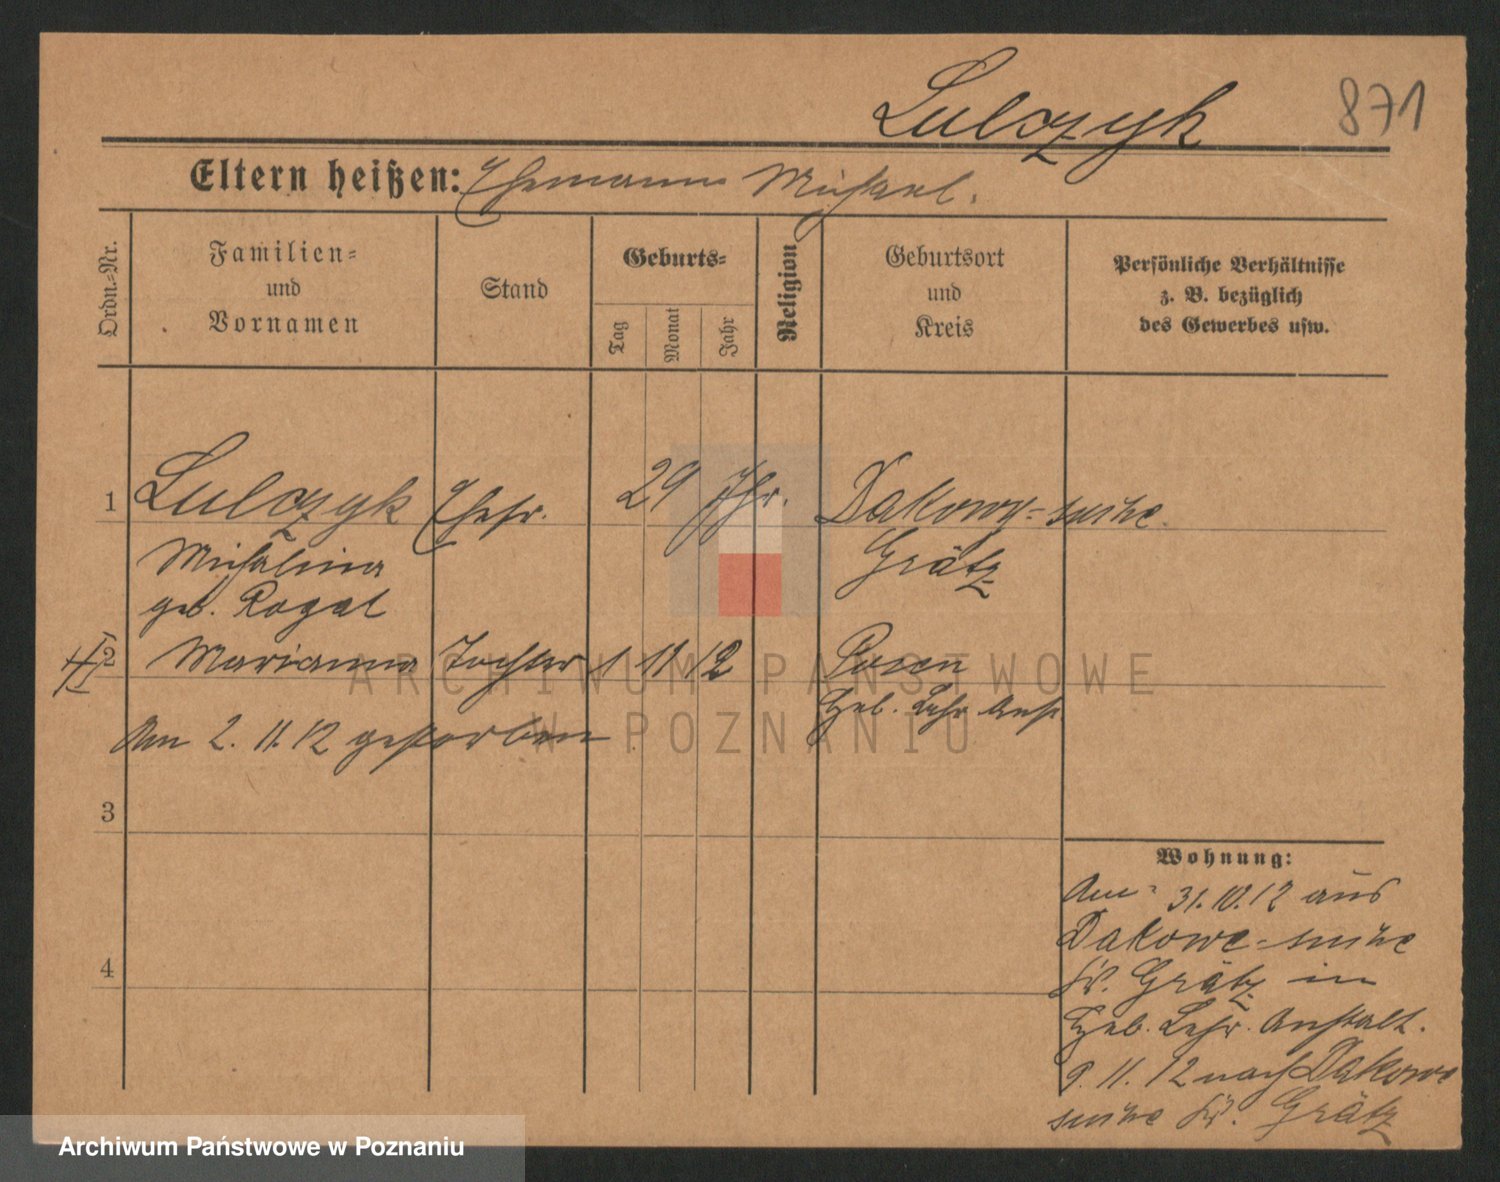 Lulczyk 871
Eltern heißen: Ehemann Michael.
Ordn.-Nr.
Familien-
und
Vornamen
Stand
Geburts-
Tag
Monat
Jahr
Religion
Geburtsort
und
Kreis
Persönliche Verhältnisse
z. B. bezüglich
des Gewerbes usw.
1 Lulczyk Ehefr. 29 Jhr. Dakowy-suche
Michalina Grätz
geb. Rogal
2 Marianna Tochter 1 11 12 Posen
Heb. Lehr Anst
Am 2. 11. 12 gestorben
3
4
Wohnung:
Am 31.10.12 aus
Dakowe-suche
Kr. Grätz in
Heb. Lehr. Anstalt.
9. 11. 12 nach Dakowe
suche Kr. Grätz
ARCHIWUM PAŃSTWOWE
W POZNANIU
Archiwum Państwowe w Poznaniu